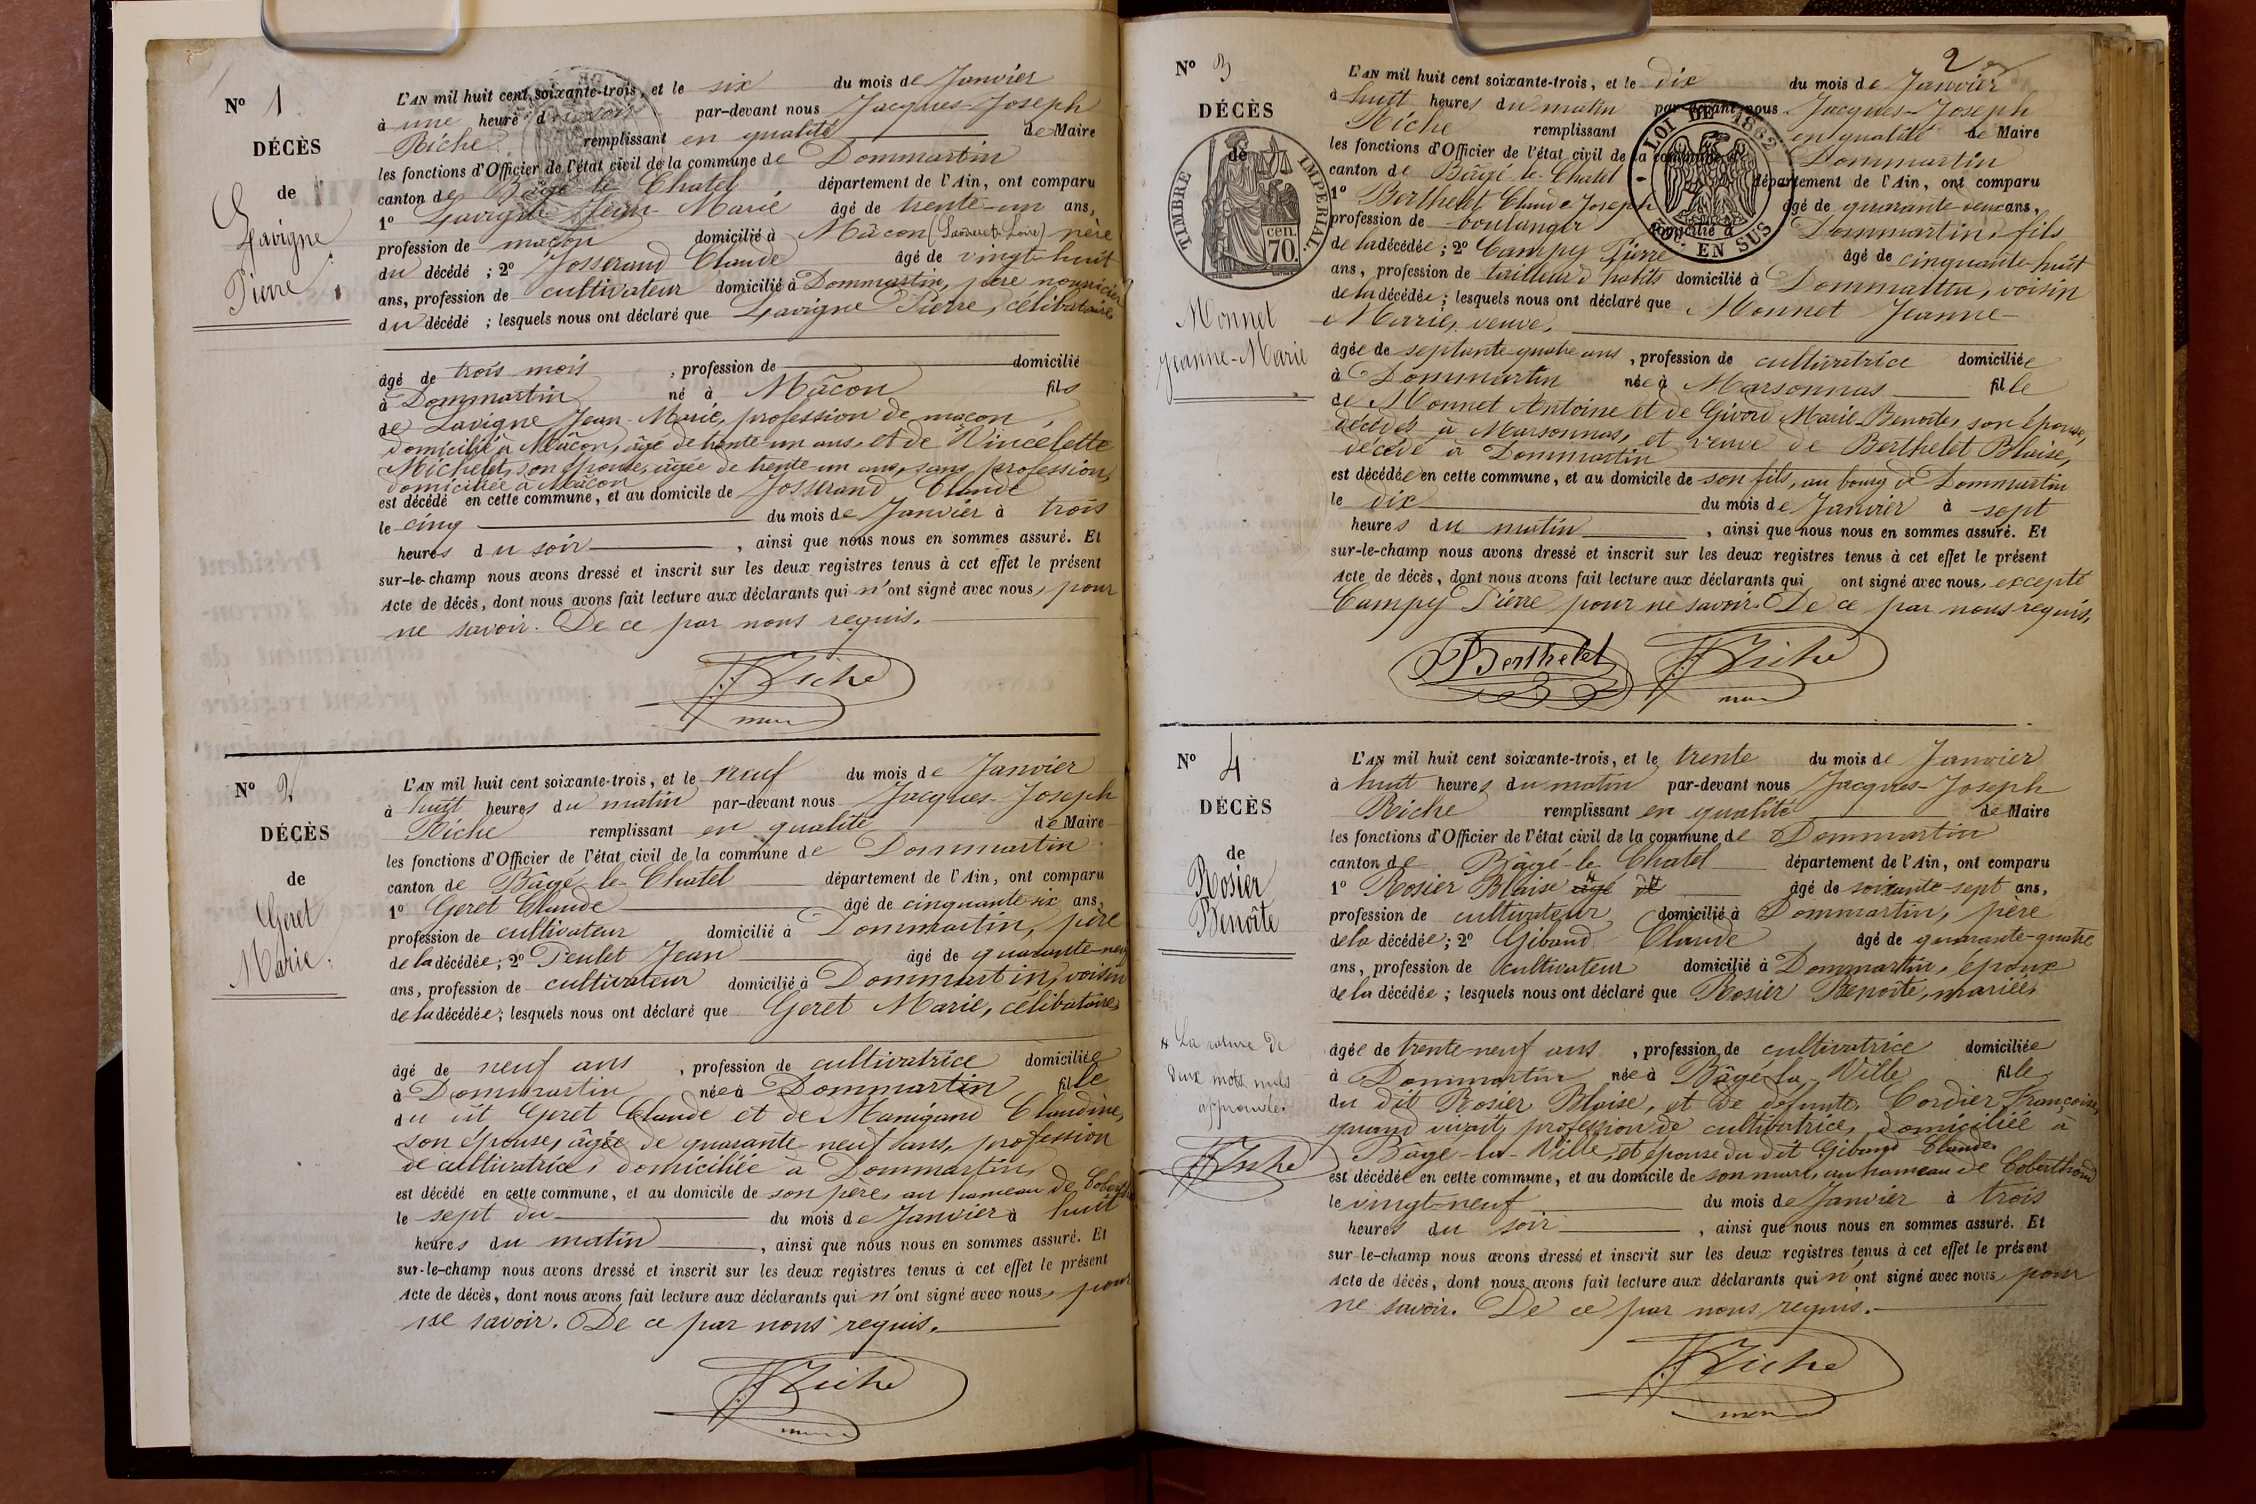 N° 1
DÉCÈS
de
Lavigne
Pierre
L'AN mil huit cent soixante-trois, et le six du mois de Janvier
à une heure du soir par-devant nous Jacques-Joseph
Riche remplissant en qualité de Maire
les fonctions d'Officier de l'état civil de la commune de Dommartin
canton de Bâgé-le-Chatel département de l'Ain, ont comparu
1° Lavigne Jean-Marie âgé de trente-un ans,
profession de maçon domicilié à Mâcon (Saône-et-Loire) père
du décédé ; 2° Josserand Claude âgé de vingt-huit
ans, profession de cultivateur domicilié à Dommartin, père nourricier
du décédé ; lesquels nous ont déclaré que Lavigne Pierre, célibataire,
âgé de trois mois , profession de domicilié
à Dommartin né à Mâcon fils
de Lavigne Jean-Marie, profession de maçon,
domicilié à Mâcon, âgé de trente-un ans, et de Vincelette
Michelet, son épouse, âgée de trente-un ans, sans profession,
domiciliée à Mâcon
est décédé en cette commune, et au domicile de Josserand Claude
le cinq du mois de Janvier à trois
heures du soir , ainsi que nous nous en sommes assuré. Et
sur-le-champ nous avons dressé et inscrit sur les deux registres tenus à cet effet le présent
Acte de décès, dont nous avons fait lecture aux déclarants qui n'ont signé avec nous, pour
ne savoir. De ce par nous requis.
JJ Riche
N° 2
DÉCÈS
de
Geret
Marie.
L'AN mil huit cent soixante-trois, et le neuf du mois de Janvier
à huit heures du matin par-devant nous Jacques-Joseph
Riche remplissant en qualité de Maire
les fonctions d'Officier de l'état civil de la commune de Dommartin
canton de Bâgé-le-Chatel département de l'Ain, ont comparu
1° Geret Claude âgé de cinquante-six ans,
profession de cultivateur domicilié à Dommartin, père
de la décédée ; 2° Peulet Jean âgé de quarante-neuf
ans, profession de cultivateur domicilié à Dommartin, voisin
de la décédée ; lesquels nous ont déclaré que Geret Marie, célibataire,
âgé de neuf ans , profession de cultivatrice domiciliée
à Dommartin née à Dommartin fille
du dit Geret Claude et de Manigand Claudine,
son épouse, âgée de quarante-neuf ans, profession
de cultivatrice, domiciliée à Dommartin
est décédé en cette commune, et au domicile de son père, au hameau de
le sept du du mois de Janvier à huit
heures du matin , ainsi que nous nous en sommes assuré. Et
sur-le-champ nous avons dressé et inscrit sur les deux registres tenus à cet effet le présent
Acte de décès, dont nous avons fait lecture aux déclarants qui n'ont signé avec nous, pour
ne savoir. De ce par nous requis.
JJ Riche
2
N° 3
DÉCÈS
de
TIMBRE IMPÉRIAL
cen.
70.
LOI DE 1862
EN SUS
Monnet
Jeanne-Marie
L'AN mil huit cent soixante-trois, et le dix du mois de Janvier
à huit heures du matin par-devant nous Jacques-Joseph
Riche remplissant en qualité de Maire
les fonctions d'Officier de l'état civil de la commune de Dommartin
canton de Bâgé-le-Chatel département de l'Ain, ont comparu
1° Berthelet Claude Joseph âgé de quarante-deux ans,
profession de boulanger domicilié à Dommartin, fils
de la décédée ; 2° Campy Pierre âgé de cinquante-huit
ans, profession de tailleur d'habits domicilié à Dommartin, voisin
de la décédée ; lesquels nous ont déclaré que Monnet Jeanne-
Marie, veuve,
âgée de septante-quatre ans , profession de cultivatrice domiciliée
à Dommartin née à Marsonnas fille
de Monnet Antoine et de Givord Marie-Benoîte, son épouse,
décédés à Marsonnas, et veuve de Berthelet Blaise,
décédé à Dommartin
est décédée en cette commune, et au domicile de son fils, au bourg de Dommartin
le dix du mois de Janvier à sept
heures du matin , ainsi que nous nous en sommes assuré. Et
sur-le-champ nous avons dressé et inscrit sur les deux registres tenus à cet effet le présent
Acte de décès, dont nous avons fait lecture aux déclarants qui ont signé avec nous, excepté
Campy Pierre pour ne savoir. De ce par nous requis.
Berthelet JJ Riche
N° 4
DÉCÈS
de
Rosier
Benoîte
L'AN mil huit cent soixante-trois, et le trente du mois de Janvier
à huit heures du matin par-devant nous Jacques-Joseph
Riche remplissant en qualité de Maire
les fonctions d'Officier de l'état civil de la commune de Dommartin
canton de Bâgé-le-Chatel département de l'Ain, ont comparu
1° Rosier Blaise âgé de soixante-sept ans,
profession de cultivateur domicilié à Dommartin, père
de la décédée ; 2° Giband Claude âgé de quarante-quatre
ans, profession de cultivateur domicilié à Dommartin, époux
de la décédée ; lesquels nous ont déclaré que Rosier Benoîte, mariée,
La rature de
deux mots nuls
approuvée.
JJ Riche
âgée de trente-neuf ans , profession de cultivatrice domiciliée
à Dommartin née à Bâgé-la-Ville fille
du dit Rosier Blaise, et de defunte Cordier Françoise,
quand vivait, profession de cultivatrice, domiciliée à
Bâgé-la-Ville, et épouse du dit Giband Claude.
est décédée en cette commune, et au domicile de son mari, au hameau de
le vingt-neuf du mois de Janvier à trois
heures du soir , ainsi que nous nous en sommes assuré. Et
sur-le-champ nous avons dressé et inscrit sur les deux registres tenus à cet effet le présent
Acte de décès, dont nous avons fait lecture aux déclarants qui n'ont signé avec nous, pour
ne savoir. De ce par nous requis.
JJ Riche